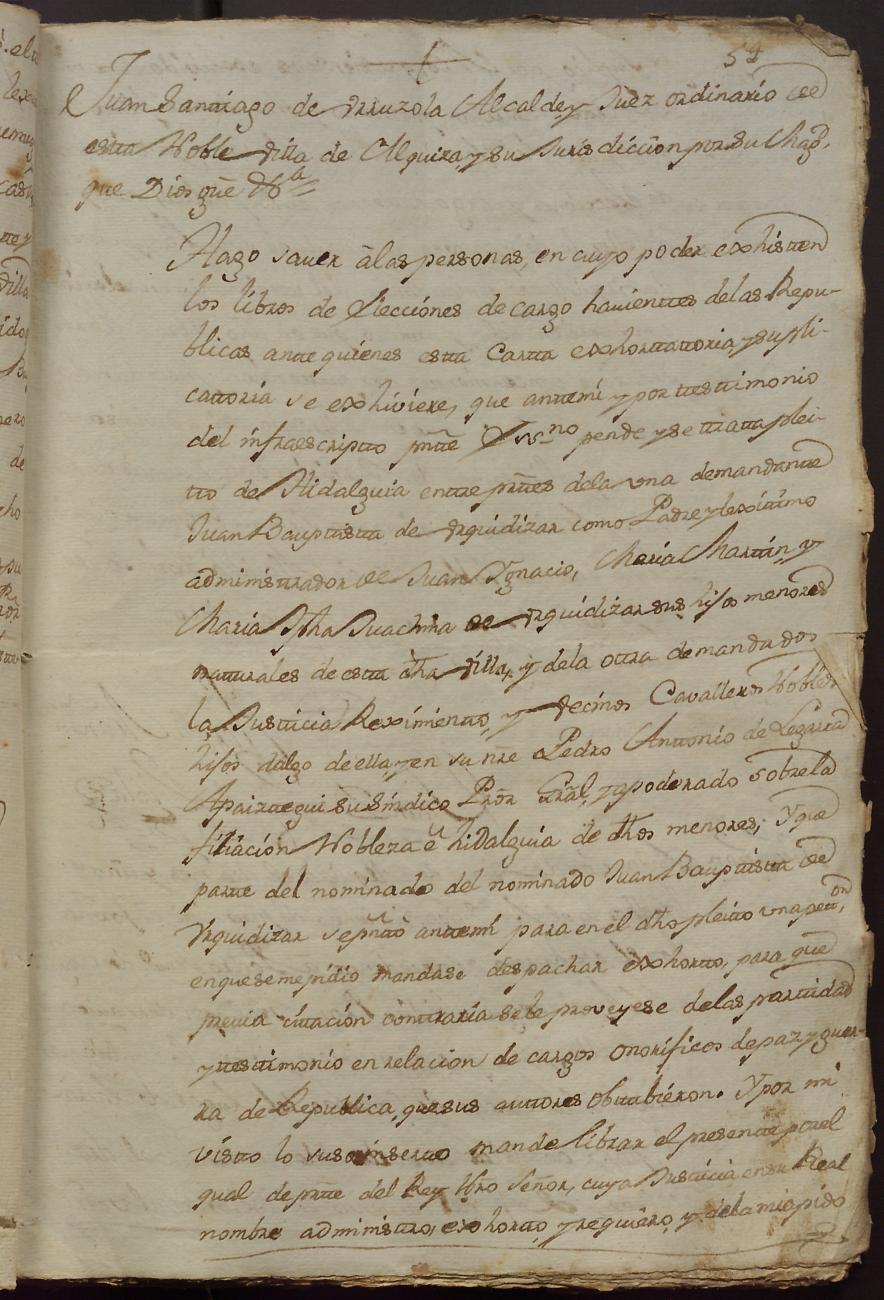 54
Juan Santiago de Urruzola Alcalde y Juez ordinario de
esta Noble Villa de Alquiza y su Jurisdiccion por su Magd.
que Dios gūe &a
Hago saver à las personas, en cuyo poder exhisten
los libros de Elecciónes de cargo havientes de las Repu-
blicas ante quienes esta Carta exhortatoria, y supli-
catoria se exhiviere, que antemi y por testimonio
del infraescripto pnte Essno pende y se trata plei-
to de Hidalguia entre prtes dela una demandante
Juan Bauptista de Urquidizar como Padre y lexitimo
administrador de Juan Ygnacio, Maria Martin, y
Maria Jpha Juachina de Urquidizar sus hijos menores
naturales de esta dha Villa, y dela otra demandados
la Justicia Reximiento, y Vecinos Cavalleros Nobles
hijos dalgo de ella, y en su nre Pedro Antonio de Legarra
Apaiztegui su Síndico Pror Gral, y apoderado sobre la
filiación Nobleza è hidalguia de dhos menores; Y que
parte del nominado del nominado Juan Bauptista de
Urquidizar se pñto antemi para en el dho pleito una petton,
en que se me pidio mandase despachar exhorto, para que
previa citación contraria se le proveyese delas partidas
y testimonio en relacion de cargos onoríficos de paz y guer-
ra de Republica, que sus autores obtubiéron. Y por mi
visto lo suso inserto mande librar el presente por el
qual de prte del Rey Nro Señor, cuya Justicia en su Real
nombre administro, exhorto, y requiero, y dela mia pido